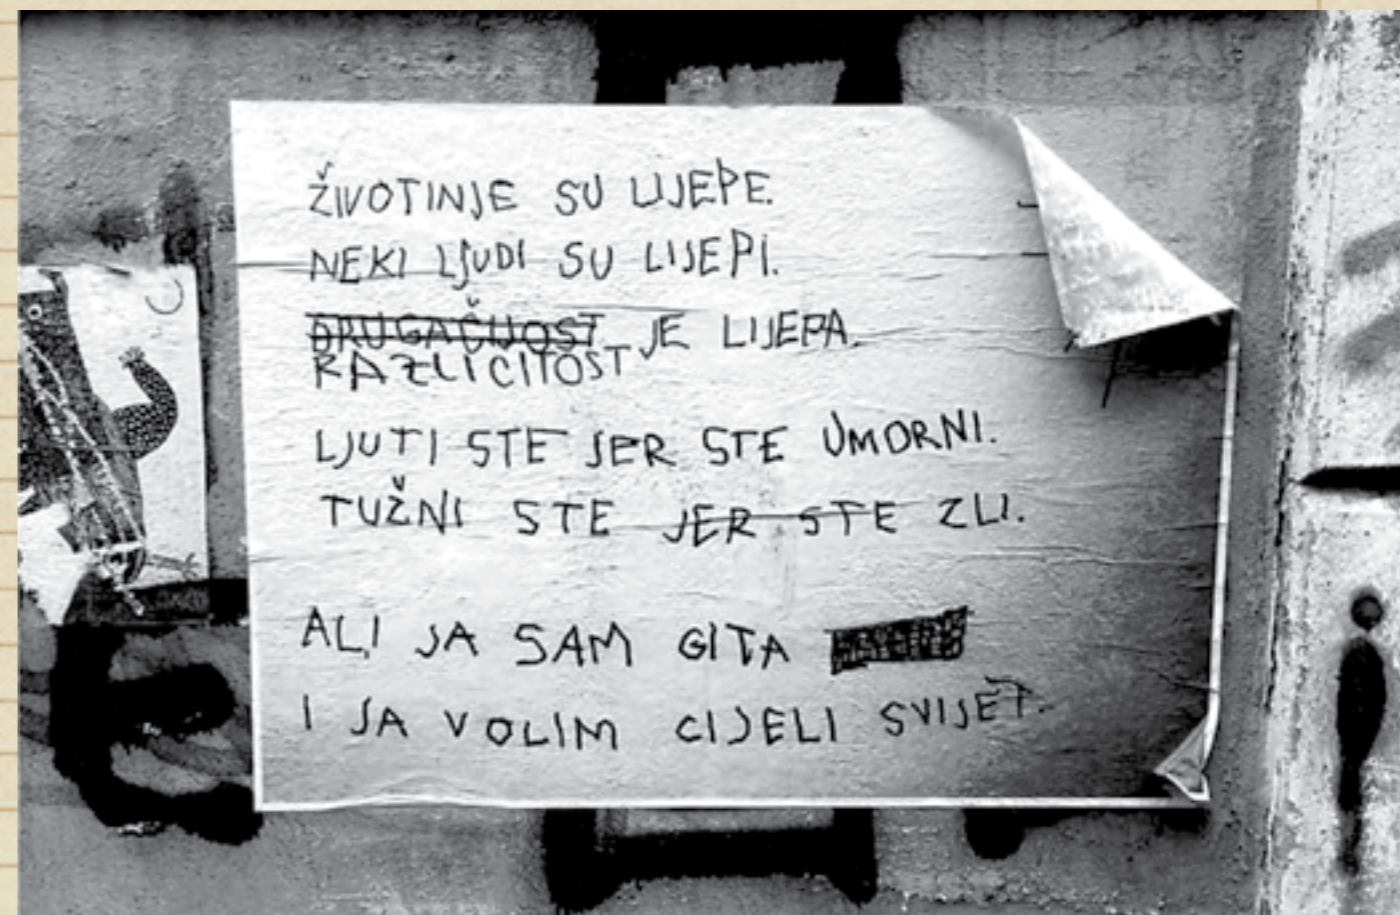 ŽIVOTINJE SU LIJEPE.
NEKI LJUDI SU LIJEPI.
DRUGAČIJOST JE LIJEPA.
RAZLIČITOST
LJUTI STE JER STE UMORNI.
TUŽNI STE JER STE ZLI.
ALI JA SAM GITA
I JA VOLIM CIJELI SVIJET.